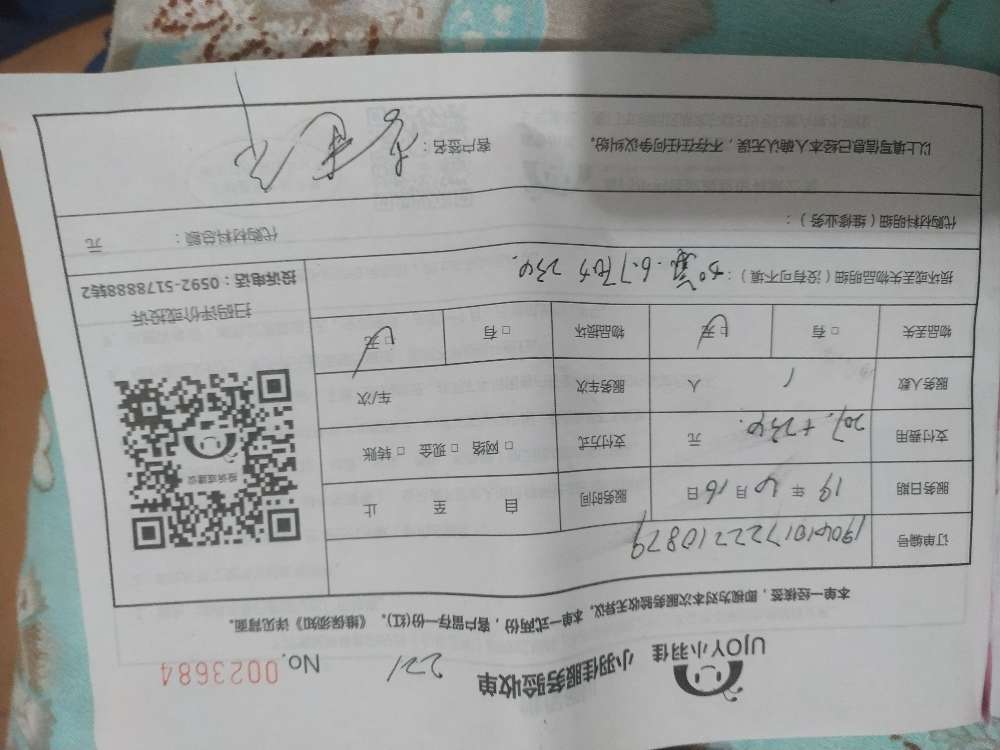 UJOY小羽佳 小羽佳服务验收单 221 No. 0023684
本单一经核签，即视为对本次服务验收无异议。本单一式两份，客户留存一份(红)。《维保须知》详见背面。
订单编号 1904101722210879
服务日期 19 年 4 月 16 日 服务时间 自 至 止
支付费用 元 支付方式 □ 网络 □ 现金 □ 转账
服务人数 1 人 服务车次 车/次
物品丢失 □ 有 □ 无 物品损坏 □ 有 □ 无
投诉或建议
扫码评价或投诉
投诉电话：0592-5178888转2
损坏或丢失物品明细（没有可不填）：
代购材料明细（维修业务）： 代购材料总额： 元
以上填写信息已经本人确认无误，不存在任何争议纠纷。 客户签名：